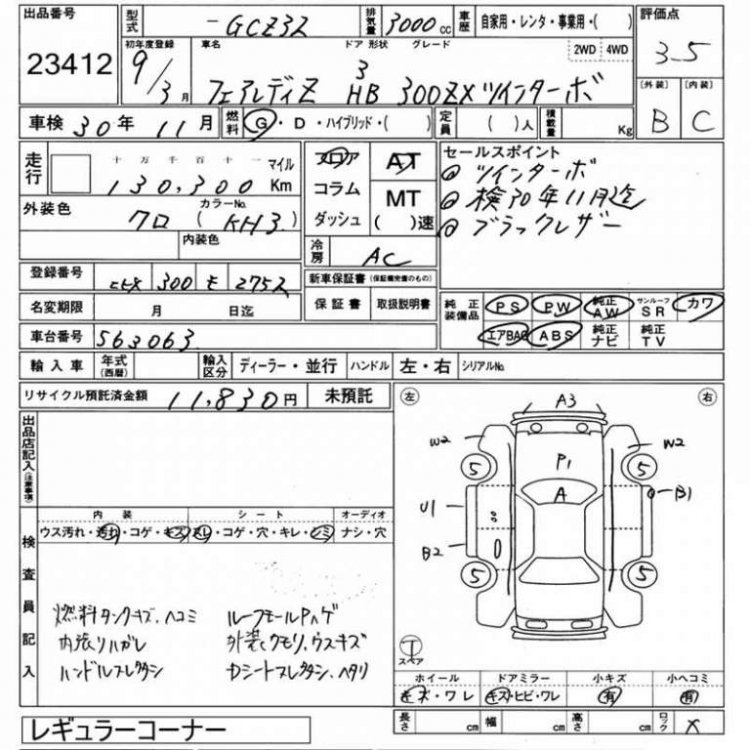 出品番号 型式 - GCZ32 排気量 3000 cc 車歴 自家用・レンタ・事業用・( ) 評価点
23412 初年度登録 車名 ドア 形状 グレード 2WD 4WD 3-5
9/3月 フェアレディZ 3 HB 300ZXツインターボ [外装] [内装]
車検 30年 11月 燃料 G・D・ハイブリッド・( ) 定員 ( )人 積載量 Kg B C
走行 十万千百十一 マイル フロア AT セールスポイント
130,300 Km コラム MT @ ツインターボ
外装色 カラーNo. ダッシュ ( )速 @ 検30年11月迄
クロ (KH3) @ ブラックレザー
内装色 冷房 AC
登録番号 300 モ 2752 新車保証書 (保証継完備のもの)
名変期限 月 日迄 保証書 取扱説明書 純正装備品 PS PW 純正AW サンルーフSR カワ
車台番号 563063 エアBAG ABS 純正ナビ 純正TV
輸入車 年式(西暦) 輸入区分 ディーラー・並行 ハンドル 左・右 シリアルNo.
リサイクル預託済金額 11,830円 未預託 左 右
出品店記入(注意事項) A3
W2 W2
5 P1 5
U1 A B1
内装 シート オーディオ
ウス汚れ・汚れ・コゲ・キズ スレ・コゲ・穴・キレ・シミ ナシ・穴
B2
検査員記入 5 5
燃料タンクキズ、ヘコミ ルーフモールPハゲ
内張りハガレ 外装クモリ、ウスキズ
ハンドルスレ Dシートスレ、ヘタリ
T スペア
ホイール ドアミラー 小キズ 小ヘコミ
キズ・ワレ キズ・ヒビ・ワレ 有 有
レギュラーコーナー 長さ cm 幅 cm 高さ cm ロック X